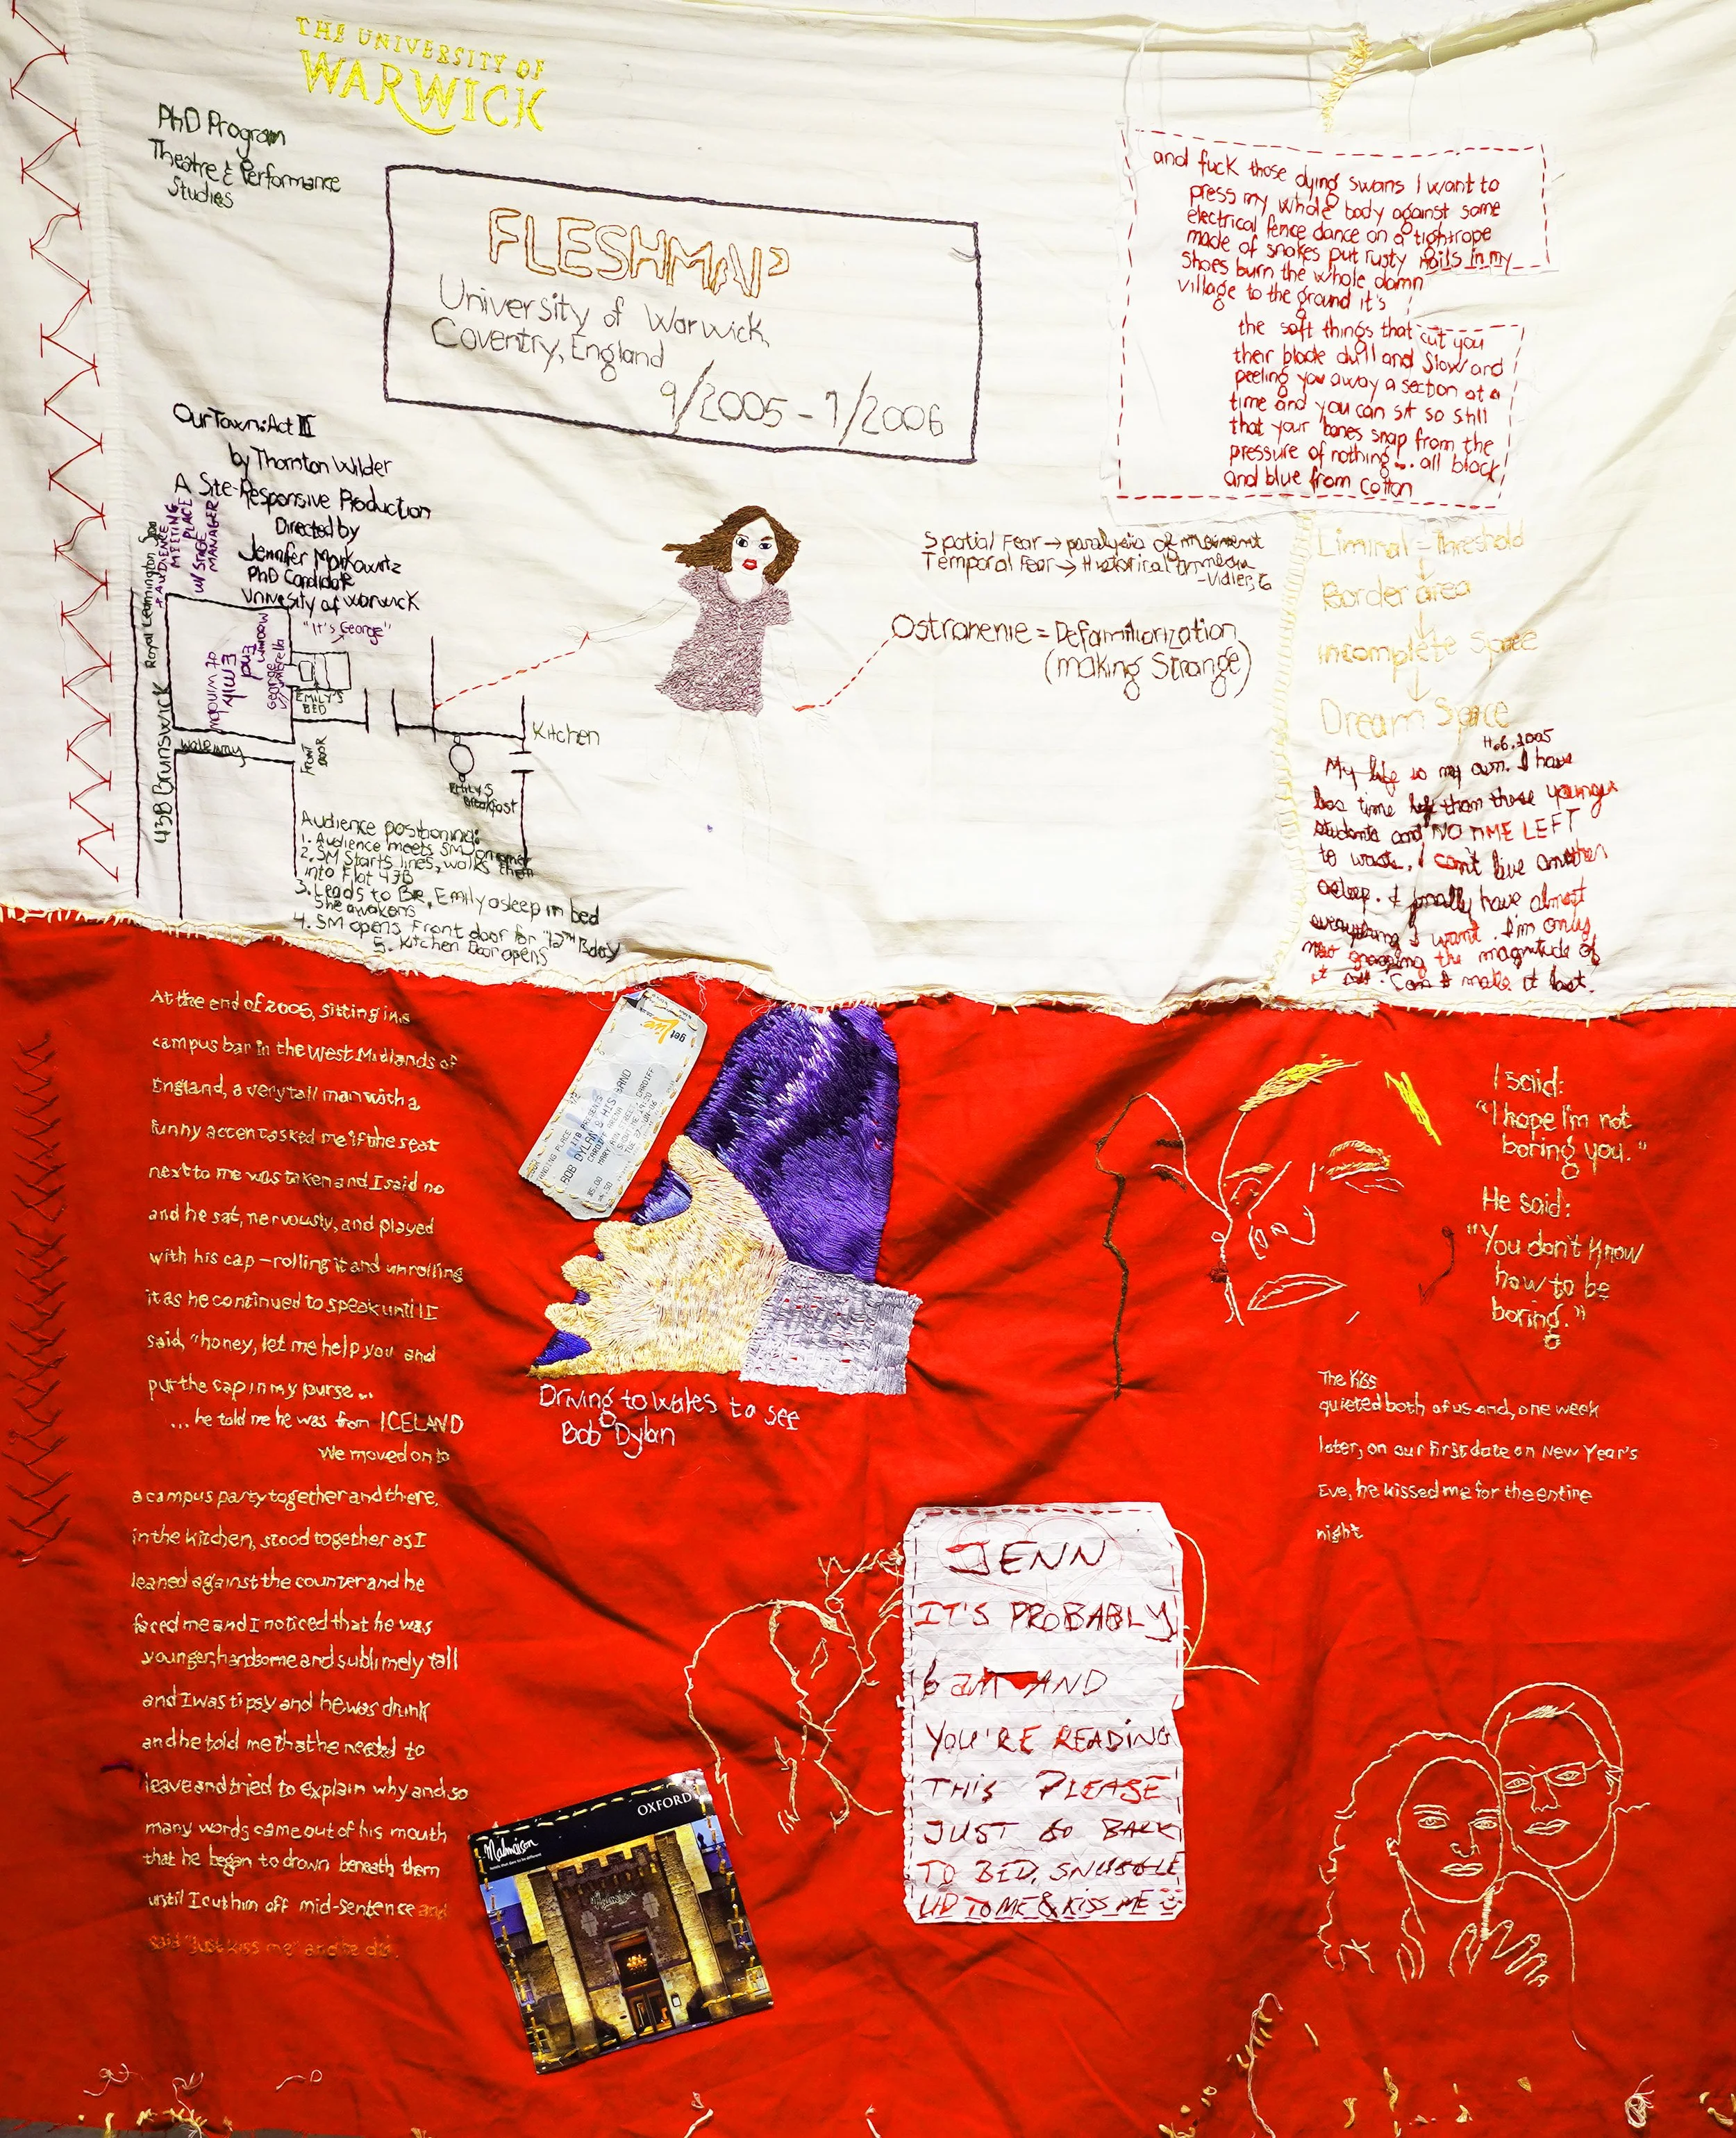 THE UNIVERSITY OF
WARWICK
PhD Program
Theatre & Performance
Studies
FLESHMAP
University of Warwick,
Coventry, England
9/2005 - 7/2006
and fuck those dying swans I want to
press my whole body against some
electrical fence dance on a tightrope
made of snakes put rusty nails in my
shoes burn the whole damn
village to the ground it's
the soft things that cut you
their blade dull and slow and
peeling you away a section at a
time and you can sit so still
that your bones snap from the
pressure of nothing... all black
and blue from cotton
Our Town: Act III
by Thornton Wilder
A Site-Responsive Production
Directed by
Jennifer Markowitz
PhD Candidate
University of Warwick
"It's George"
AUDIENCE
MEETING
PLACE
W/ STAGE
MANAGER
Royal Leamington Spa
43B Brunswick
EMILY'S
BED
walkway
FRONT
DOOR
Kitchen
Emily's
Breakfast
Audience positioning:
1. Audience meets SM on corner
2. SM starts lines, walks them
into Flat 43B
3. Leads to BR, Emily asleep in bed
She awakens
4. SM opens Front door for "12th Bday
5. Kitchen Door opens
Spatial Fear → paralysis of movement
Temporal Fear → Historical amnesia
-Vidler, 6
Ostranenie = Defamiliarization
(making Strange)
Liminal - Threshold
Border area
incomplete Space
Dream Space
11.6.2005
My life is my own. I have
less time left than these younger
students and NO TIME LEFT
to waste. I can't live another
asleep. I finally have almost
everything I want. I'm only
now grasping the magnitude of
it all. Can I make it last.
At the end of 2005, sitting in a
campus bar in the West Midlands of
England, a very tall man with a
funny accent asked me if the seat
next to me was taken and I said no
and he sat, nervously, and played
with his cap – rolling it and unrolling
it as he continued to speak until I
said, "honey, let me help you and
put the cap in my purse...
...he told me he was from ICELAND
We moved on to
a campus party together and there,
in the kitchen, stood together as I
leaned against the counter and he
faced me and I noticed that he was
younger, handsome and sublimely tall
and I was tipsy and he was drunk
and he told me that he needed to
leave and tried to explain why and so
many words came out of his mouth
that he began to drown beneath them
until I cut him off mid-sentence and
said "Just kiss me" and he did.
get live
BOB DYLAN & HIS BAND
CARDIFF ARENA
MARY ANN STREET, CARDIFF
TUE 27-JUN-06
Driving to Wales to see
Bob Dylan
I said:
"I hope I'm not
boring you."
He said:
"You don't know
how to be
boring."
The Kiss
quieted both of us and, one week
later, on our first date on New Year's
Eve, he kissed me for the entire
night
JENN
IT'S PROBABLY
6 am AND
YOU'RE READING
THIS PLEASE
JUST GO BACK
TO BED, SNUGGLE
UP TO ME & KISS ME
OXFORD
Malmaison